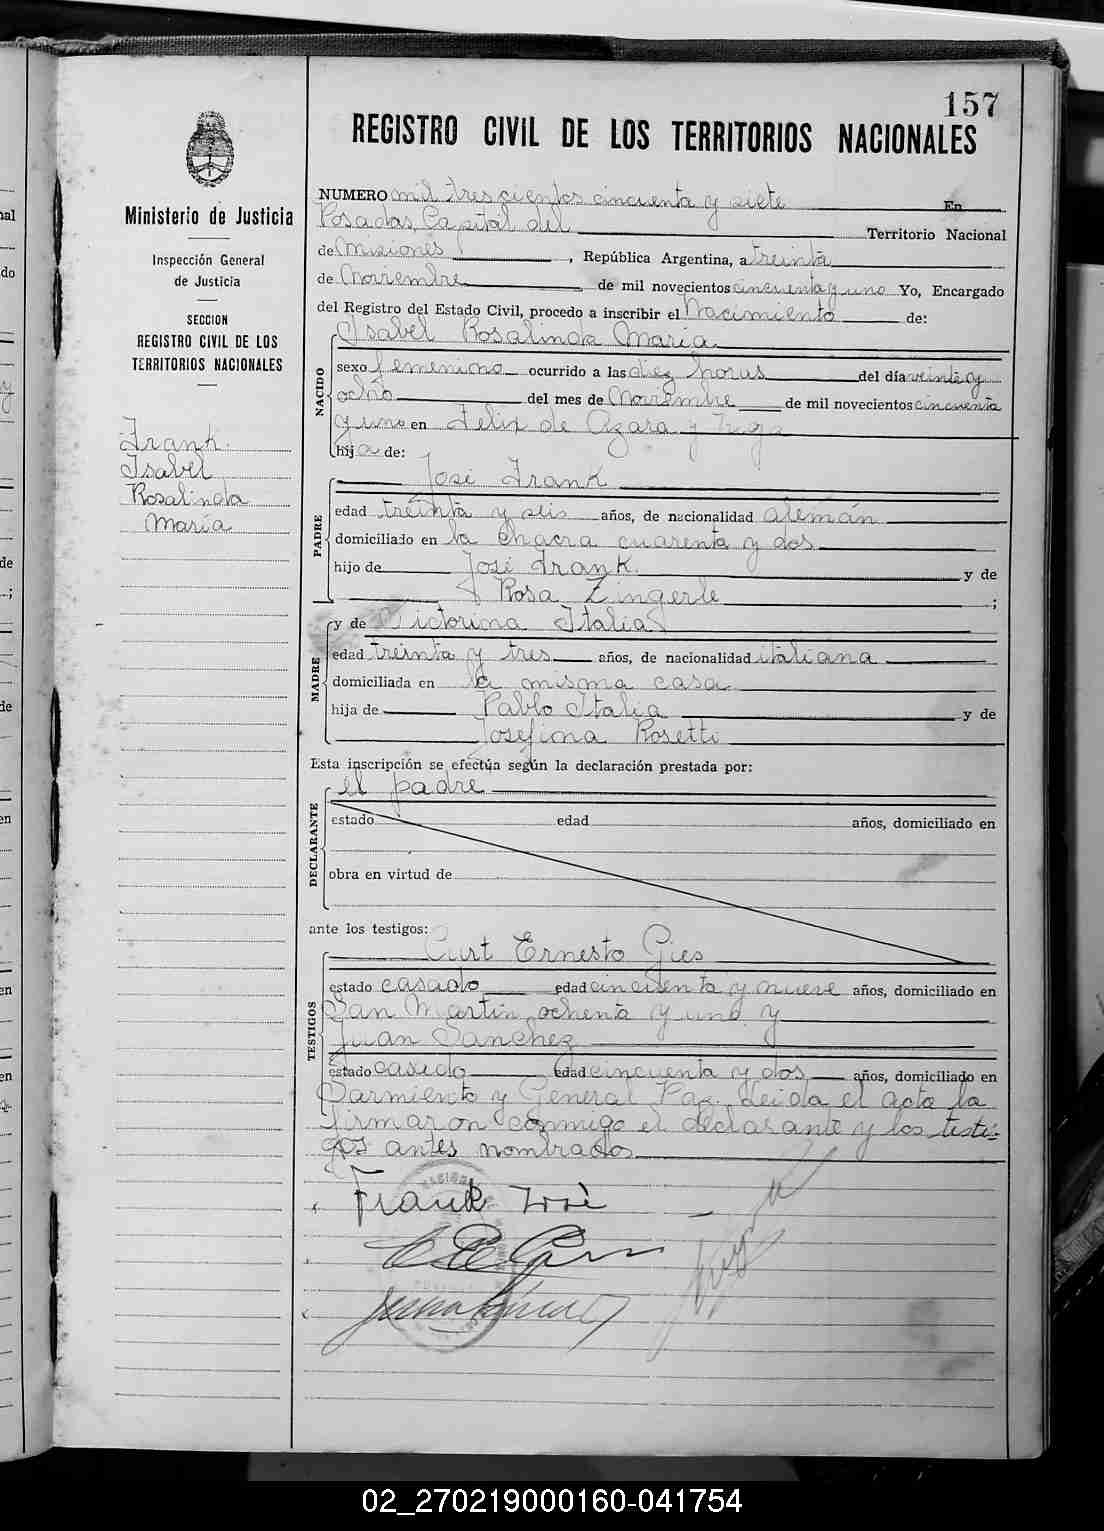 157
REGISTRO CIVIL DE LOS TERRITORIOS NACIONALES
Ministerio de Justicia
Inspección General
de Justicia
SECCION
REGISTRO CIVIL DE LOS
TERRITORIOS NACIONALES
Frank
Isabel
Rosalinda
María
NUMERO mil trescientos cincuenta y siete En
Posadas, Capital del Territorio Nacional
de Misiones, República Argentina, a treinta
de Noviembre de mil novecientos cincuenta y uno Yo, Encargado
del Registro del Estado Civil, procedo a inscribir el Nacimiento de:
Isabel Rosalinda María
NACIDO
sexo femenino ocurrido a las diez horas del día veinte y
ocho del mes de Noviembre de mil novecientos cincuenta
y uno en Felix de Azara y
hija de:
José Frank
PADRE
edad treinta y seis años, de nacionalidad alemán
domiciliado en la chacra cuarenta y dos
hijo de José Frank y de
Rosa Zingerle ;
MADRE
y de Victorina Italia
edad treinta y tres años, de nacionalidad italiana
domiciliada en la misma casa
hija de Pablo Italia y de
Josefina Rosetti
Esta inscripción se efectúa según la declaración prestada por:
el padre
DECLARANTE
estado edad años, domiciliado en
obra en virtud de
ante los testigos:
Curt Ernesto Gies
TESTIGOS
estado casado edad cincuenta y nueve años, domiciliado en
San Martín ochenta y uno y
Juan Sanchez
estado casado edad cincuenta y dos años, domiciliado en
Sarmiento y General Paz. Leída el acta la
firmaron conmigo el declarante y los testi-
gos antes nombrados
Frank José
02_270219000160-041754